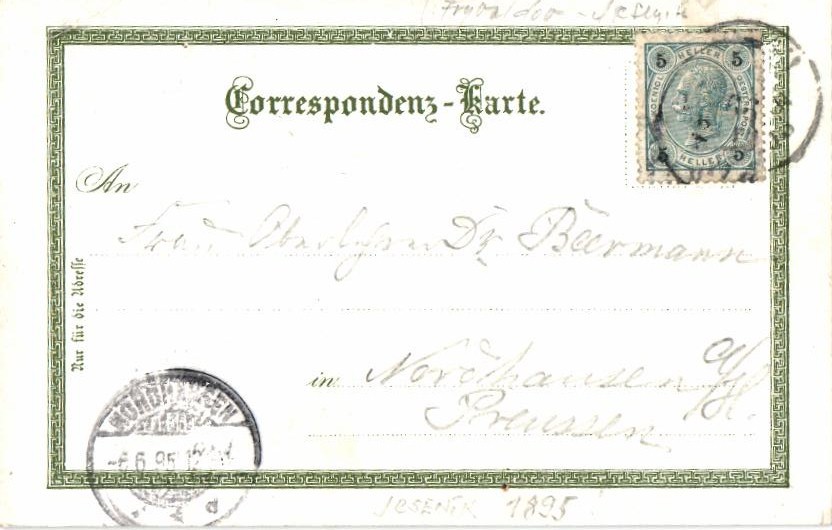 Freiwaldau - Jesenik
Correspondenz-Karte.
5 HELLER 5
5 HELLER 5
An
Frau Oberlehrer Dr. Beermann
Nur für die Adresse
in Nordhausen a/H.
Preussen
NORDHAUSEN
-6.6.95.12
d
JESENIK 1895